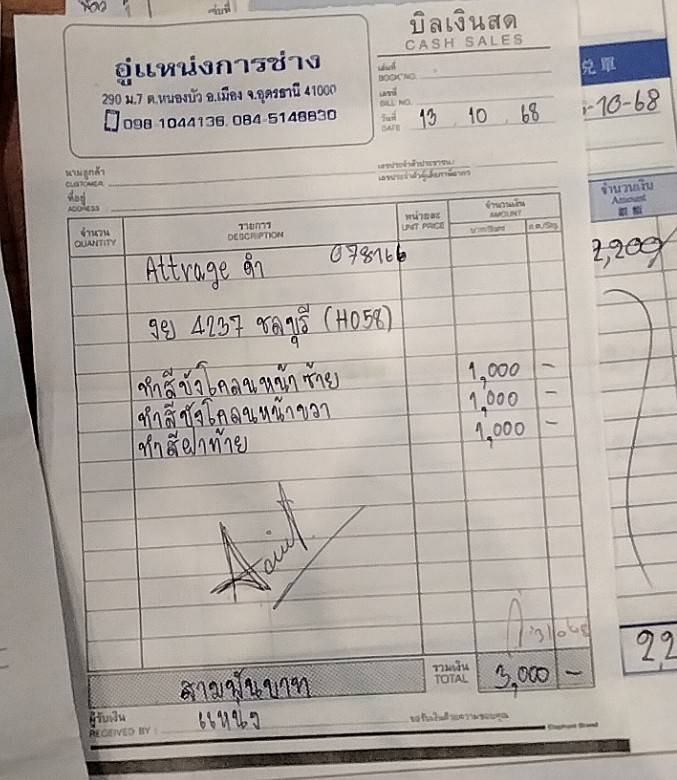 บิลเงินสด
CASH SALES
อู่แหน่งการช่าง
290 ม.7 ต.หนองบัว อ.เมือง จ.อุดรธานี 41000
098-1044136, 084-5148830
เล่มที่
BOOK NO.
เลขที่
BILL NO.
วันที่
DATE 13 10 68
นามลูกค้า
CUSTOMER
ที่อยู่
ADDRESS
จำนวน
QUANTITY
รายการ
DESCRIPTION
หน่วยละ
UNIT PRICE
จำนวนเงิน
AMOUNT
Attrage ดำ 078166
4237 ชลบุรี (H058)
ทำสีบังโคลนหน้าซ้าย 1,000 -
ทำสีบังโคลนหน้าขวา 1,000 -
ทำสีฝาท้าย 1,000 -
สามพันบาท
รวมเงิน
TOTAL 3,000 -
ผู้รับเงิน แหน่ง
RECEIVED BY
Elephant Brand
-10-68
จำนวนเงิน
Amount
2,200